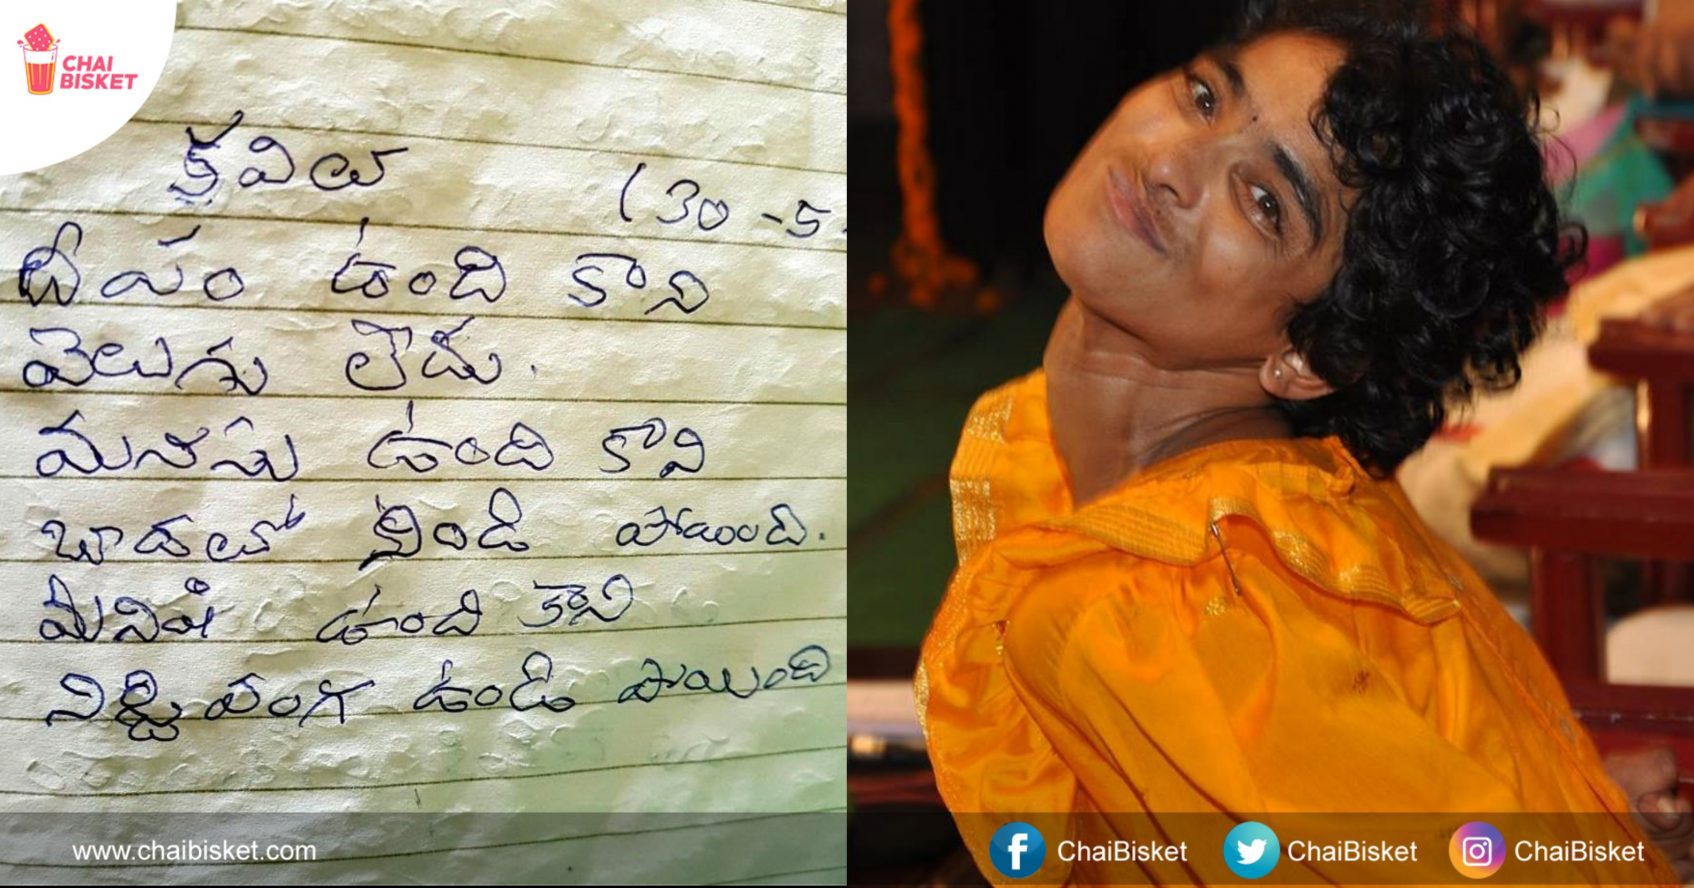 CHAI
BISKET
కవిలు
(30-5
దీపం ఉంది కాని
వెలుగు లేదు.
మనసు ఉంది కాని
బాదలో నిండి పోయింది.
మనిషి ఉంది కాని
నిర్జివంగ ఉండి పోయింది
www.chaibisket.com
ChaiBisket
ChaiBisket
ChaiBisket